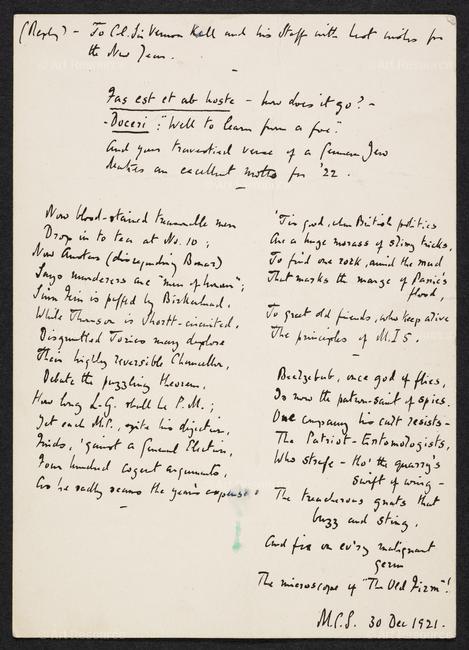 (Reply) - To Col. Sir Vernon Kell and his Staff with best wishes for
the New Year.
Fas est et ab hoste - how does it go? -
- Doceri: "Well to learn from a foe".
And your travestied verse of a German Jew
Makes an excellent motto for '22.
Now blood-stained treasonable men
Drop in to tea at No. 10;
Now Amateurs (disregarding Bonar)
Says murderers are "men of honour";
Sinn Fein is puffed by Birkenhead,
While Thomson is short-circuited,
Disgruntled Tories may deplore
Their highly reversible Chancellor,
Debate the puzzling theorem,
How long L.G. shall be P.M.;
Yet each M.P., spite his digestion,
Finds, 'gainst a General Election,
Four hundred cogent arguments,
As he sadly scans the year's expense.
'Tis good, when British politics
Are a huge morass of slimy tricks,
To find one rock, amid the mud
That marks the marge of Passion's
flood,
To greet old friends, who keep alive
The principles of M.I.5.
Beelzebub, once god of flies,
Is now the patron-saint of spies.
One company his cult resists -
The Patriot-Entomologists,
Who strafe - tho' the quarry's
swift of wing -
The treacherous gnats that
buzz and sting,
And fix on ev'ry malignant
germ
The microscope of "The Old Firm"!
M.C.S. 30 Dec 1921.